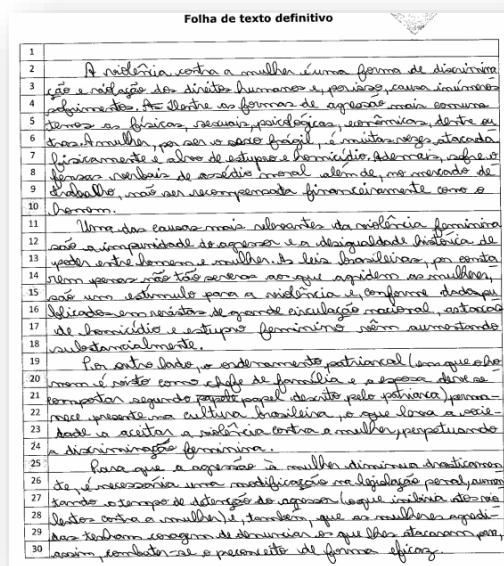 Folha de texto definitivo
1
2 A violência contra a mulher é uma forma de discrimina
3 ção e violação dos direitos humanos e, por isso, causa inúmeros
4 sofrimentos. As dentre as formas de agressão mais comuns
5 temos as físicas, sexuais, psicológicas, econômicas, dentre ou
6 tras. A mulher, por ser o sexo frágil, é muitas vezes, atacada
7 fisicamente e alvo de estupro e homicídio. Ademais, sofre o
8 fensas verbais de assédio moral alem de, no mercado de
9 trabalho, não ser recompensada financeiramente como o
10 homem.
11 Uma das causas mais relevantes da violência feminina
12 são a impunidade do agressor e a desigualdade histórica de
13 poder entre homem e mulher. As leis brasileiras, por conta
14 rem penas não tão severas aos que agridem as mulheres,
15 são um estímulo para a violência e, conforme dados pu
16 blicados em revistas de grande circulação nacional, as taxas
17 de homicídio e estupro feminino vêm aumentando
18 substancialmente.
19 Por outro lado, o ordenamento patriarcal (em que o ho
20 mem é visto como chefe de família e a esposa deve se
21 comportar segundo papel descrito pelo patriarca) perma-
22 nece presente na cultura brasileira, o que leva a socie-
23 dade a aceitar a violência contra a mulher, perpetuando
24 a discriminação feminina.
25 Para que a agressão à mulher diminua drasticamen-
26 te, é necessária uma modificação na legislação penal, aumen
27 tando o tempo de detenção do agressor (o que inibiria atos vio
28 lentos contra a mulher) e, também, que as mulheres agredi-
29 das tenham coragem de denunciar os que lhes atacaram para,
30 assim, combater-se o preconceito de forma eficaz.